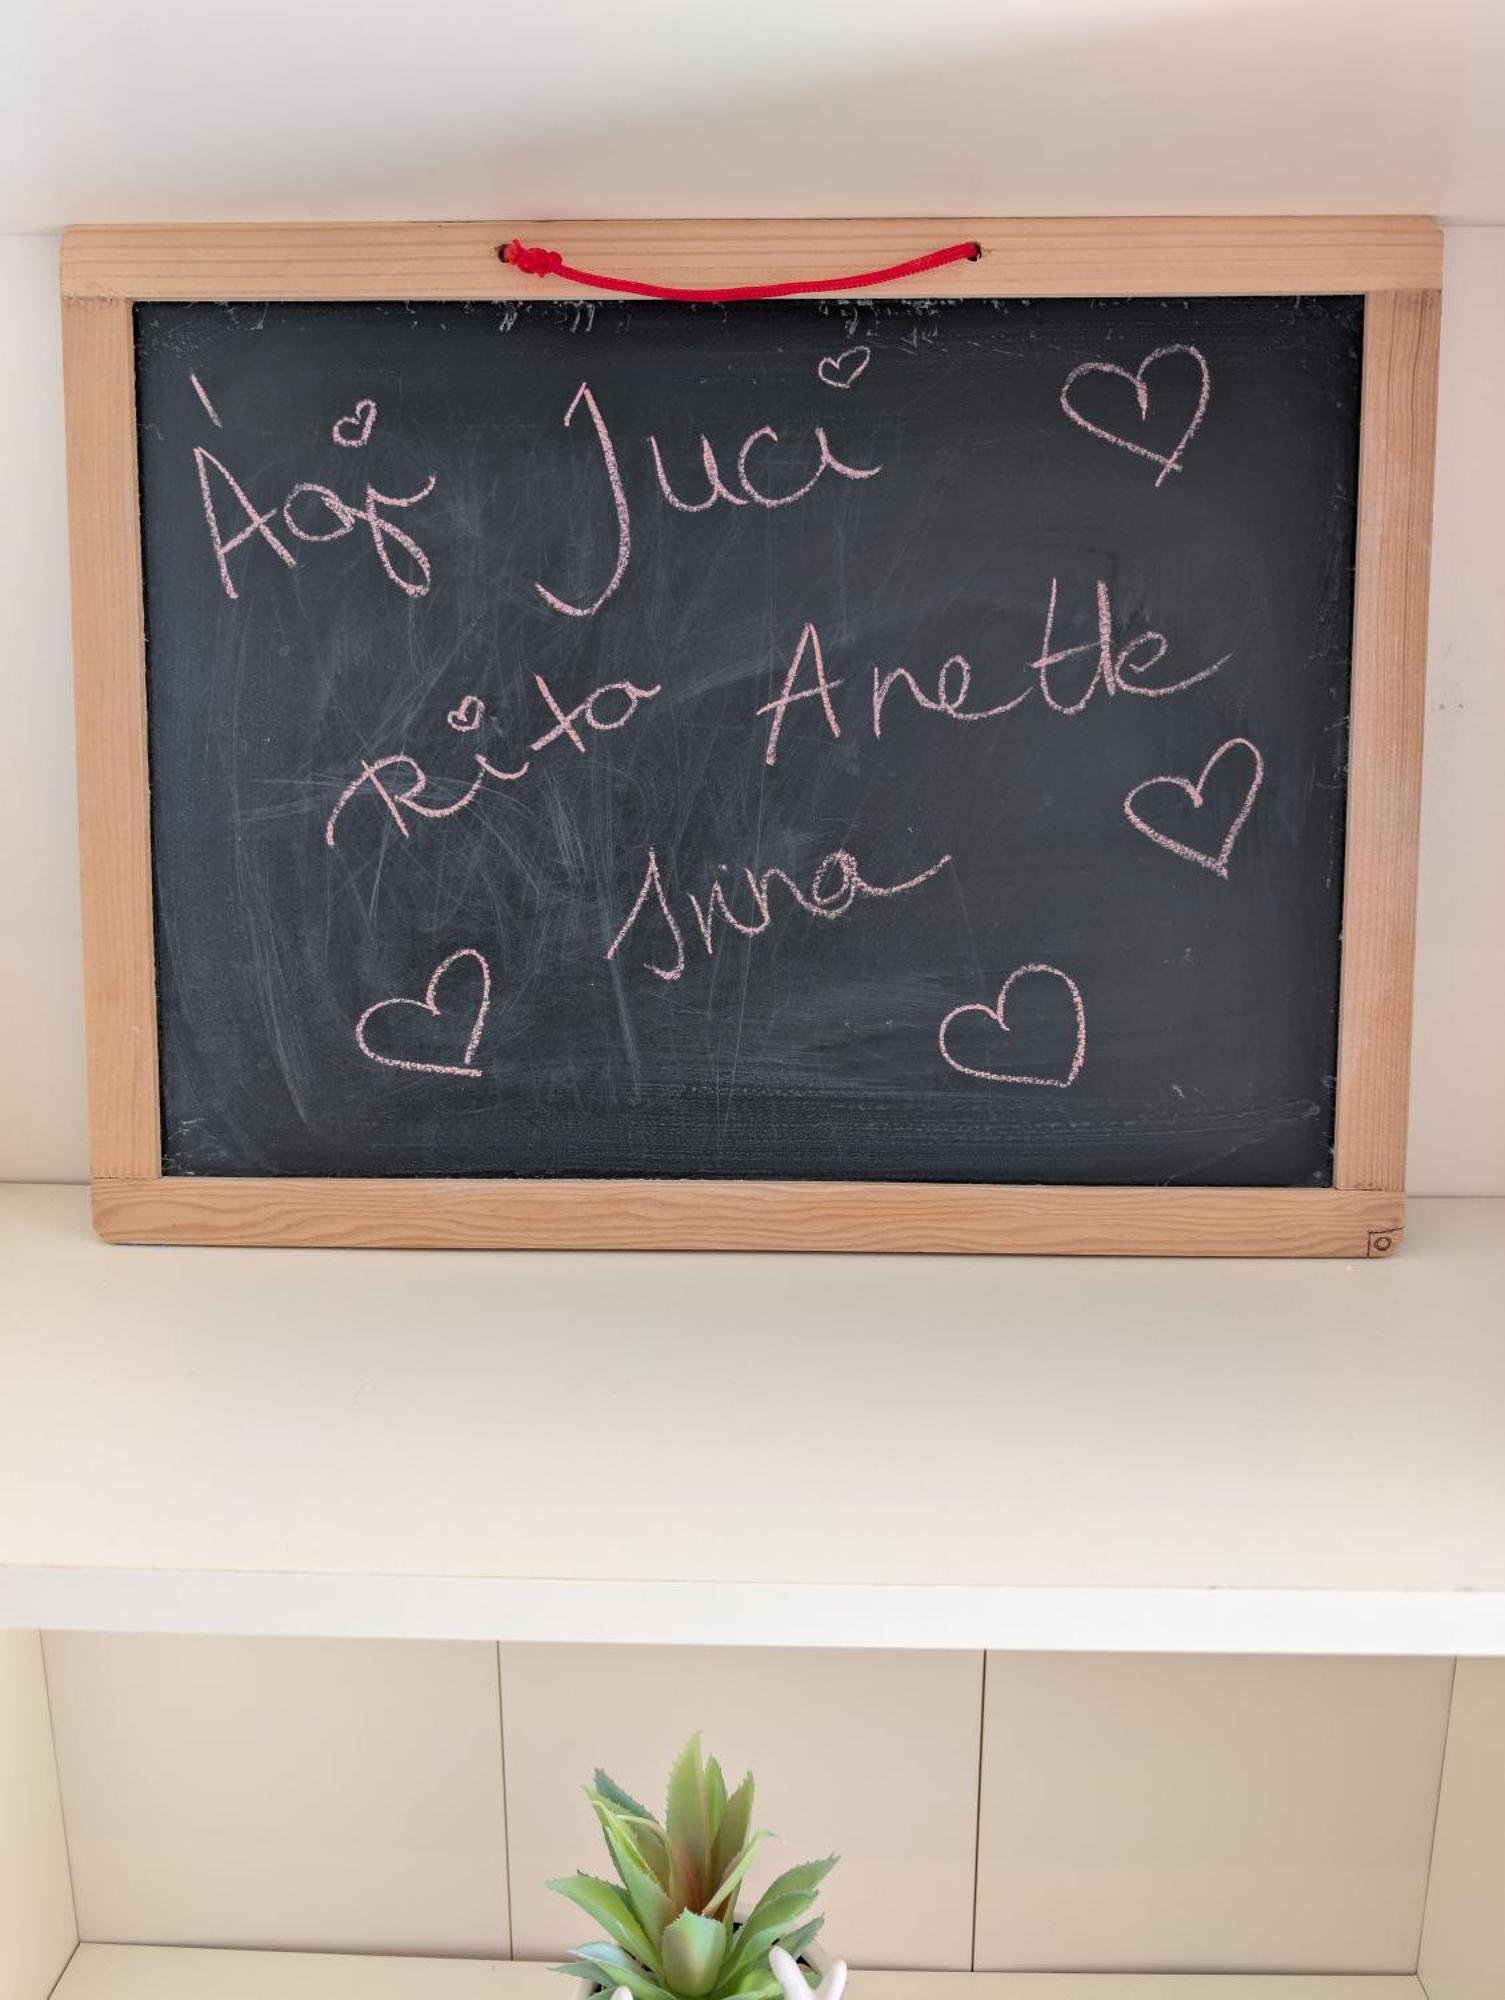 Ági Juci
Rita Anett
Irina